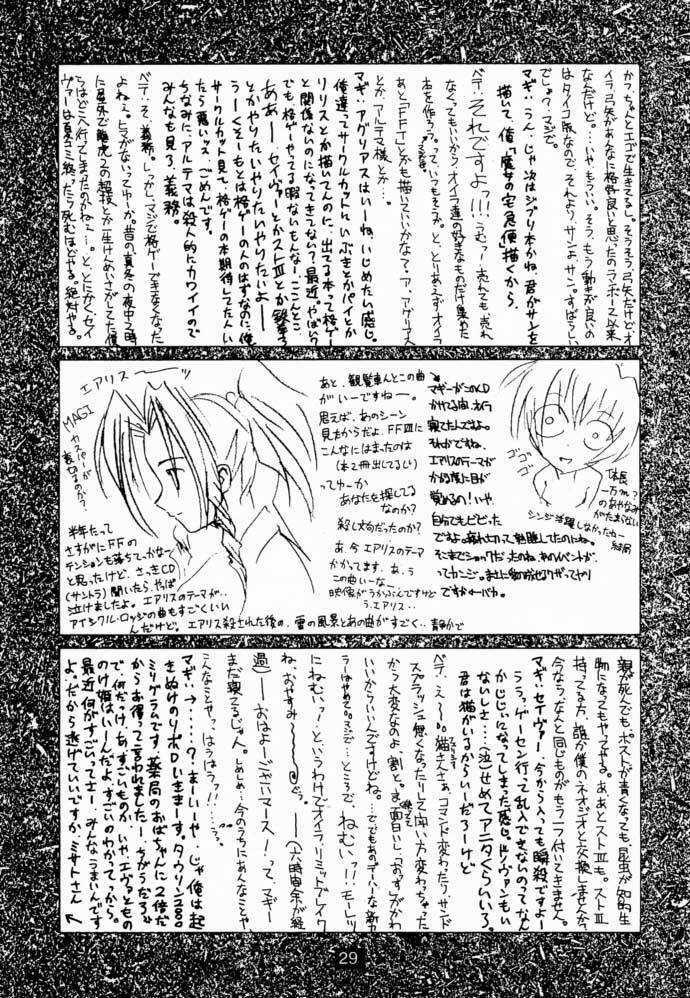 かつ、ちゃんとエヴァで生きてるし。そうそう、弓矢だけど、オ
イラ、弓矢があんなに格好良いと思ったのランボー以来
なんだけど。…いや、もういい。そう、もう動きが良いの
はタイコ版なので、それより、サンよ、サン。すばらしい
でしょ？マジで。
マギ：うん、じゃ次はジブリ本かね。君がサンを
描いて、俺「魔女の宅急便」描くから。
ベテ：それですよ!!!うむっ!売れても売れ
なくてもいいから、オイラ達の好きなものだけ集めた
本を作ろう。って、いつもそうか。と、とりあえずオイラ
あと「FFT」とかも描いていいかな？ア、アグリアス
とか、アルテマ様とか…。
マギ：アグリアスはいーね、いじめたい感じ。
俺達ってサークルカットにいぶきとかパイとか
リリスとか描いてんのに、出てる本って格ゲー
と関係ないのになってきてない？最近。やばい？
でも格ゲーやってる暇ないもんなー。
ああー、セイヴァーとかストⅢとか鉄拳3
とかやりたいやりたいやりたいよー――
うーくそーもとは格ゲーの人のはずなのに、俺
サークルカット見て、格ゲーの本期待してた人い
たら薄いっス　ごめんです。
ちなみに、アルテマは殺人的にカワイイので
みんなも見ろ。義務。
ベテ：そ、義務。しっかし、マジで格ゲーできなくなった
よねえ。ヒマがないってゆーか。昔の真冬の夜中2時
に屋外で龍虎2の超技とか一生けんめいさがしてた俺
らはどこへ行ってしまったのかねぇ…。と、とにかくセイ
ヴァーは夏コミ終ったら死むほどやる。絶対やる。
シンジ活躍しなかったねー結局
ゴゴゴ
マギーがこのCD
かけてる間、オイラ
寝てたんですよ。
それがですね、
エアリスのテーマが
かかる度に目が
覚めるの！いや、
自分でもビビった
ですよ。疲れ切って熟睡してたのにね。
そこまでショックだったのね、あのイベントが
ってカンジ。
あと、観覧車んとこの曲
がいーですねー。
思えば、あのシーン
見たからだよ、FFⅦに
こんなにはまったのは
（本2冊出てるし）
ってゆーか
あなたを探してる
なのか？
殺し文句だったのか？
あ、今エアリスのテーマ
かかってます。あ、う
この曲いーなー
映像がうかぶんですけど
う、エアリス‥
エアリスー
MAGI
カスパーが
裏切るのか？
半年たって
さすがにFFの
テンションも落ちてっかなて
と思ったけど、さっきCD
（サントラ）聞いたら、やば
泣けましたよ。エアリスのテーマが‥
アイシクル・ロッジの曲もすごくいい
んだけど。エアリス殺された後の、雪の風景とあの曲がすごく‥静かで
親が死んでも、ポストが青くなっても、昆虫が知的生
物になってもやってやる。ああ、とストⅢも。ストⅢ
持ってる方、誰か僕のネオジオCDと交換しませんか？
今なら、なんと同じものがもう一つ付いてきません。
マギ：セイヴァー、今から入っても瞬殺ですよー
ううっ、ゲーセン行って乱入できないのって、なん
かじじいになってしまった感じ。ドノヴァンもい
ないしさ…（泣）せめてアニタくらいいろ。
君は猫がいるからいーだろーけど
ベテ：え～。猫さんさぁ、コマンド変わったり、サンド
スプラッシュ無くなったりして闘い方変わっちゃった
から大変なのよ、割と。ま、面白いし、「おす」がかわ
いいからいいんですけどね。ででもあのデハーな新カ
ラーはやめて。マジで…ところで、ねむいっ!!モーレツ
にねむいっ！というわけでオイラ、リミットブレイク
ね、おやすみ～～～。――（六時間余が経
過）――おはよーございマース！って、マギー
まだ寝てるじゃん。しめしめ、今のうちにあんなことや
こんなことや。はうはうっ!!……。
マギ：→‥‥？まーいーや、じゃ俺は起
きぬけのリポDいきまーす。タウリン2000
ミリグラムです。薬局のおばちゃんに「2倍だ
からお得」って言われました―ちがうだろ。
で、何だっけ、あ、すごいものか、いや、エヴァともの
のけ姫はいーんだよ、すごいのわかってっから。
最近何がすごいってさー、みんなうまいんです
よ。だから逃げていいですか、ミサトさん
29